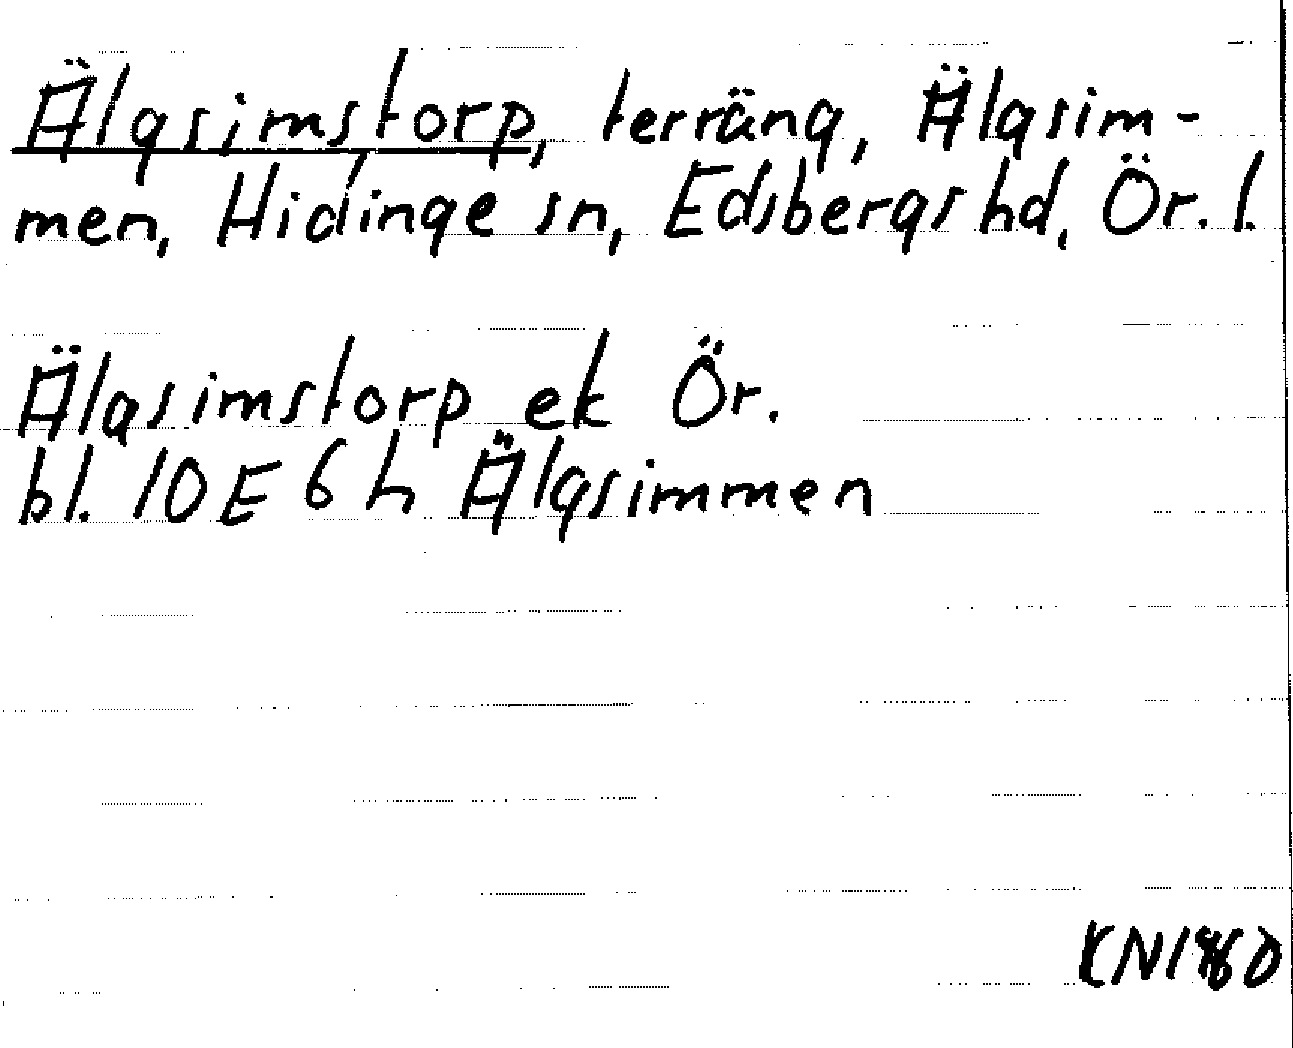 Älgsimstorp, terräng, Älgsim-
men, Hidinge sn, Edsbergs hd, Ör. l.
Älgsimstorp ek Ör.
bl. 10E 6h Älgsimmen